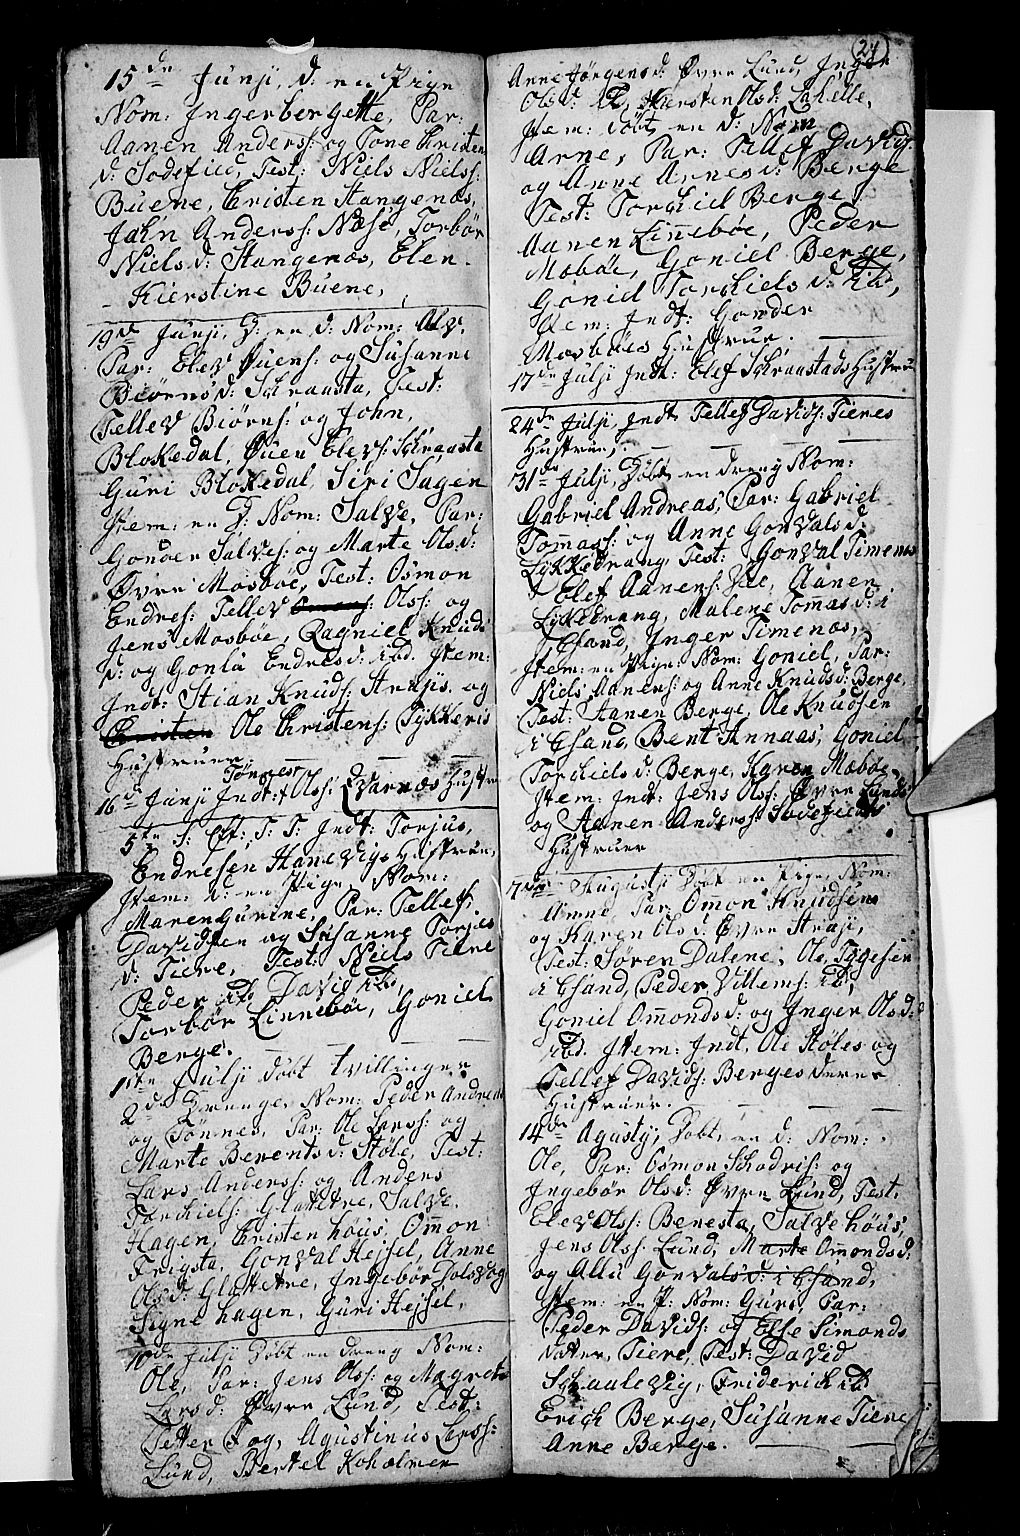 15de Junji, d: en Pige
Nom: Ingerbergette, Par:
Aanen Anders: og Tone Christen
d: Sodefied, Test: Niels Niels:
Buene, Christen Stangenæs,
Jahn Anders: Næse, Torbør
Niels d: Stangenæs, Elen
Kierstine Buene,
19de Junji, D: en d: Nom: Olv.
Par: Elev Ouens: og Susanne
Biørns d: Schraasta, Test:
Tellev Biørns: og John,
Blokedal, Ouen Elevs: Schraasta
Guri Blokedal, Siri Sagen
Item: en D: Nom: Salve, Par:
Gonder Salves: og Marte Ols d:
Øvre Mosbøe, Test: Osmon
Endres: Tellev Ols: og
Jens Mosbøe, Ragniel Knuds
d: og Gonla Endres d: ibd. Item:
Indt: Stian Knuds: Strajis og
Christen Ole Christens: Tykkeris
Hustruer.
Tønnes
16de Junji Indt: Ols: Qvarnæs Hustru
5te S: Eft: T: T: Indt: Torjus,
Endresen Hanevigs Hustrue,
Item: d: en Pige, Nom:
Maren Gurine, Par: Tellef:
Davidsen og Susanne Torjus
d: Tiere, Test: Niels Tiere
Peder ib, David ib,
Torbør Linnebøe, Goniel
Berge.
1te Julji døbt tvillinger
2de Drenge, Nom: Peder Andreas
og Tønnes, Par: Ole Lars: og
Marte Berents d: Støle, Test:
Lars Anders: og Anders
Torkiels: Glattetre, Salve
Hagen, Christen høus, Ommon
Frigsta, Gonval Hejsel, Anne
Ols d: Glattetre, Ingebør Dolsvog
Signe hagen, Guri Hejsel,
10de Julji Døbt en dreng Nom:
Ole, Par: Jens Ols: og Magrete
Lars d: Øvre Lund, Test:
Petter Fog, Agustinius Lars:
Lund, Bertel Koholmen
24
Anne Jørgens d: Øvre Lund, Inger
Ols d: ib, Kiersten Ols d: Lahelle,
Item: døbt en d: Nom
Arne, Par: Tellef Davids:
og Anne Arnes d: Berge
Test: Torchiel Berge,
Aanen Linnebøe, Peder
Mobøe, Goniel Berge,
Goniel Torchiels d: ib,
Item: Indt: Gonder
Mosbøes Hustrue.
17de Julji Indt: Elef Schraastads Hustrue
24de Julji, Indt Tellef Davids: Tieres
Hustrue.
31de Julji, Døbt en dreng Nom:
Gabriel Andreas, Par: Gabriel
Tommas: og Anne Gonvals d:
Lykkedrang, Test: Gonval Timenæs
Elef Aanens: Vee, Aanen
Lykkedrang, Malene Tommas d: i
Esand, Inger Timenæs,
Item: en Pige Nom: Goniel, Par:
Niels Aanens: og Anne Knuds d: Berge,
Test: Aanen Berge, Ole Knudsen
i Esand, Bent Annaas, Goniel
Torchiels d: Berge, Karen Mobøe,
Item: Indt: Jens Ols: Øvre Lunds
og Aanen Anders: Sodefieds
Hustruer
7de Augustji Døbt en Pige, Nom:
Anne, Par Omon Knudsen
og Karen Ols d: Øvre Straji,
Test: Søren Dalene, Ole Tygesen
i Esand, Peder Villems: ib,
Goniel Ommonds d: og Inger Ols d:
ibd. Item: Indt. Ole Støles og
Tellef Davids: Berges derer
Hustruer.
14de Agustj, Døbt en d: Nom:
Ole, Par: Osmon Schadris: og
Ingebør Ols d: Øvre Lund, Test,
Elev Ols: Benesta, Salve høus,
Jens Ols: Lund, Marte Ommonds d:
og Alli Gonvals d: i Esand,
Item: en P: Nom: Guro, Par:
Peder Davids: og Else Simonds
datter, Tiere, Test: David
Schaulevig, Friderich ib
Erich Berge, Susanne Tiere
Anne Berge.